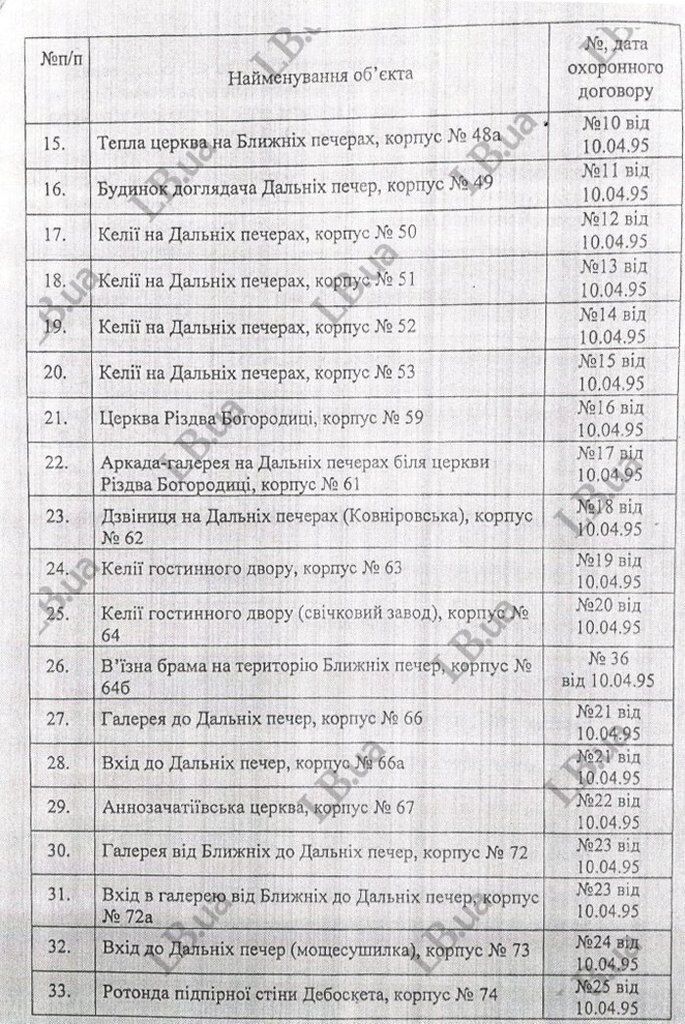 №п/п
Найменування об’єкта
№, дата
охоронного
договору
15.
Тепла церква на Ближніх печерах, корпус № 48а
№10 від
10.04.95
16.
Будинок доглядача Дальніх печер, корпус № 49
№11 від
10.04.95
17.
Келії на Дальніх печерах, корпус № 50
№12 від
10.04.95
18.
Келії на Дальніх печерах, корпус № 51
№13 від
10.04.95
19.
Келії на Дальніх печерах, корпус № 52
№14 від
10.04.95
20.
Келії на Дальніх печерах, корпус № 53
№15 від
10.04.95
21.
Церква Різдва Богородиці, корпус № 59
№16 від
10.04.95
22.
Аркада-галерея на Дальніх печерах біля церкви
Різдва Богородиці, корпус № 61
№17 від
10.04.95
23.
Дзвіниця на Дальніх печерах (Ковнірoвська), корпус
№ 62
№18 від
10.04.95
24.
Келії гостинного двору, корпус № 63
№19 від
10.04.95
25.
Келії гостинного двору (свічковий завод), корпус №
64
№20 від
10.04.95
26.
В’їзна брама на територію Ближніх печер, корпус №
64б
№ 36
від 10.04.95
27.
Галерея до Дальніх печер, корпус № 66
№21 від
10.04.95
28.
Вхід до Дальніх печер, корпус № 66а
№21 від
10.04.95
29.
Аннозачатіївська церква, корпус № 67
№22 від
10.04.95
30.
Галерея від Ближніх до Дальніх печер, корпус № 72
№23 від
10.04.95
31.
Вхід в галерею від Ближніх до Дальніх печер, корпус
№ 72а
№23 від
10.04.95
32.
Вхід до Дальніх печер (мощесушилка), корпус № 73
№24 від
10.04.95
33.
Ротонда підпірної стіни Дебоскета, корпус № 74
№25 від
10.04.95
LB.ua